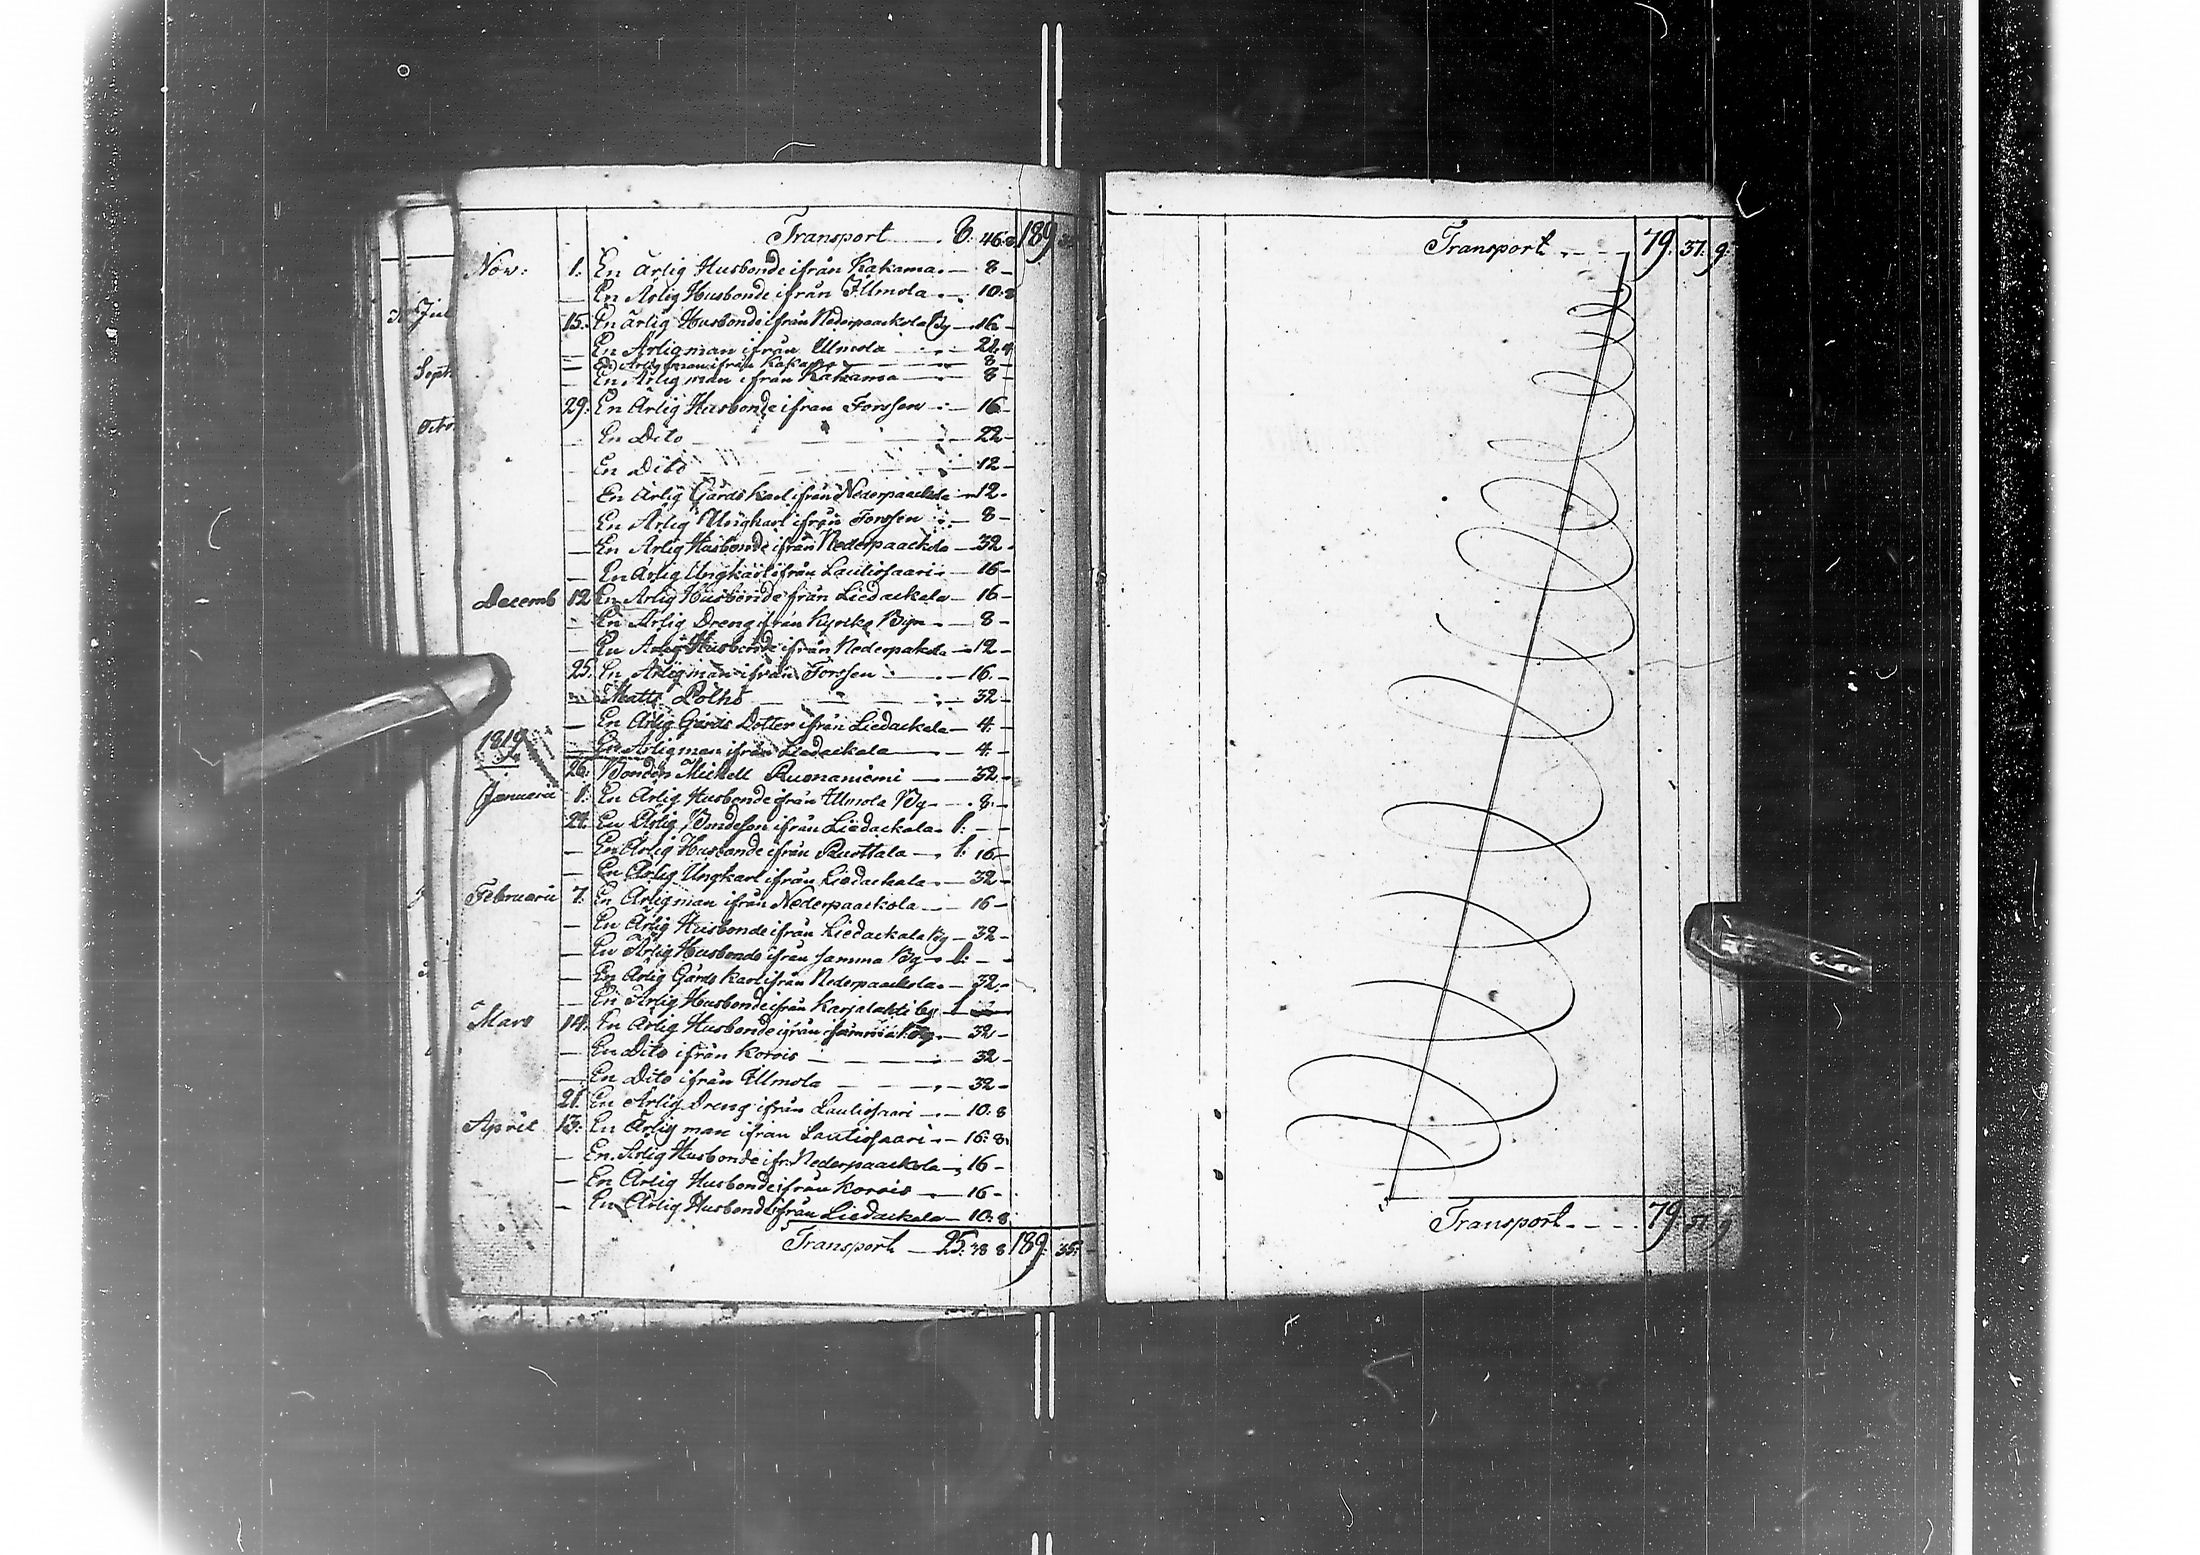 Transport 6. 46. 189
Nov: 1. En ärlig Husbonde ifrån Kakama. — 8 —
— En Ärlig Husbonde ifrån Illmola — 10. 8
15. En ärlig Husbonde ifrån Nederpaackola By — 16 —
— En Ärlig man ifrån Illmola — 21. 4
— En Ärlig man ifrån Kakama — 8 —
— En Ärlig man ifrån Kakama — 8 —
29. En Ärlig Husbonde ifrån Forssen — 16 —
— En Dito — 22 —
— En Dito — 12 —
— En Ärlig Gårds Karl ifrån Nederpaackola — 12 —
— En Ärlig Ungkarl ifrån Forssen — 8 —
— En Ärlig Husbonde ifrån Nederpaackola — 32 —
— En Ärlig Ungkarl ifrån Lautiosaari — 16 —
Decemb 12 En Ärlig Husbonde ifrån Liedackala — 16 —
— En Ärlig Dreng ifrån Kyrko Byn — 8 —
— En Ärlig Husbonde ifrån Nederpakola — 12 —
25. En Ärlig man ifrån Forssen — 16 —
— Matts Polho — 32 —
— En Ärlig Gårds Dotter ifrån Liedackala — 4 —
— En Ärlig man ifrån Liedackala — 4 —
1819
26. Bonden Mickell Ruonaniemi — 32 —
Januarii 1. En Ärlig Husbonde ifrån Illmola By — 8 —
24. En Ärlig Bondeson ifrån Liedackala 1: — —
— En Ärlig Husbonde ifrån Ruottala — 1: 16 —
— En Ärlig Ungkarl ifrån Liedackala — 32 —
Februarii 7. En Ärlig man ifrån Nederpaackola — 16 —
— En Ärlig Husbonde ifrån Liedackala By — 32 —
— En Ärlig Husbonde ifrån samma By — 1: — —
— En Ärlig Gårds Karl ifrån Nederpaackola — 32 —
— En Ärlig Husbonde ifrån Karjalahti by 1
Mars 14. En Ärlig Husbonde ifrån samma By — 32 —
— En Dito ifrån Korois — 32 —
— En Dito ifrån Illmola — 32 —
21. En Ärlig Dreng ifrån Lautiosaari — 10. 8
April 13. En Ärlig man ifrån Lautiosaari — 16: 8
— En Ärlig Husbonde ifr: Nederpaackola — 16 —
— En Ärlig Husbonde ifrån Korois — 16 —
— En Ärlig Husbonde ifrån Liedackala — 10: 8
Transport — 25. 38 8 189. 35.
Jul
Sept
Transport . - - - 79. 37. 9.
Transport. - - - 79. 37. 9